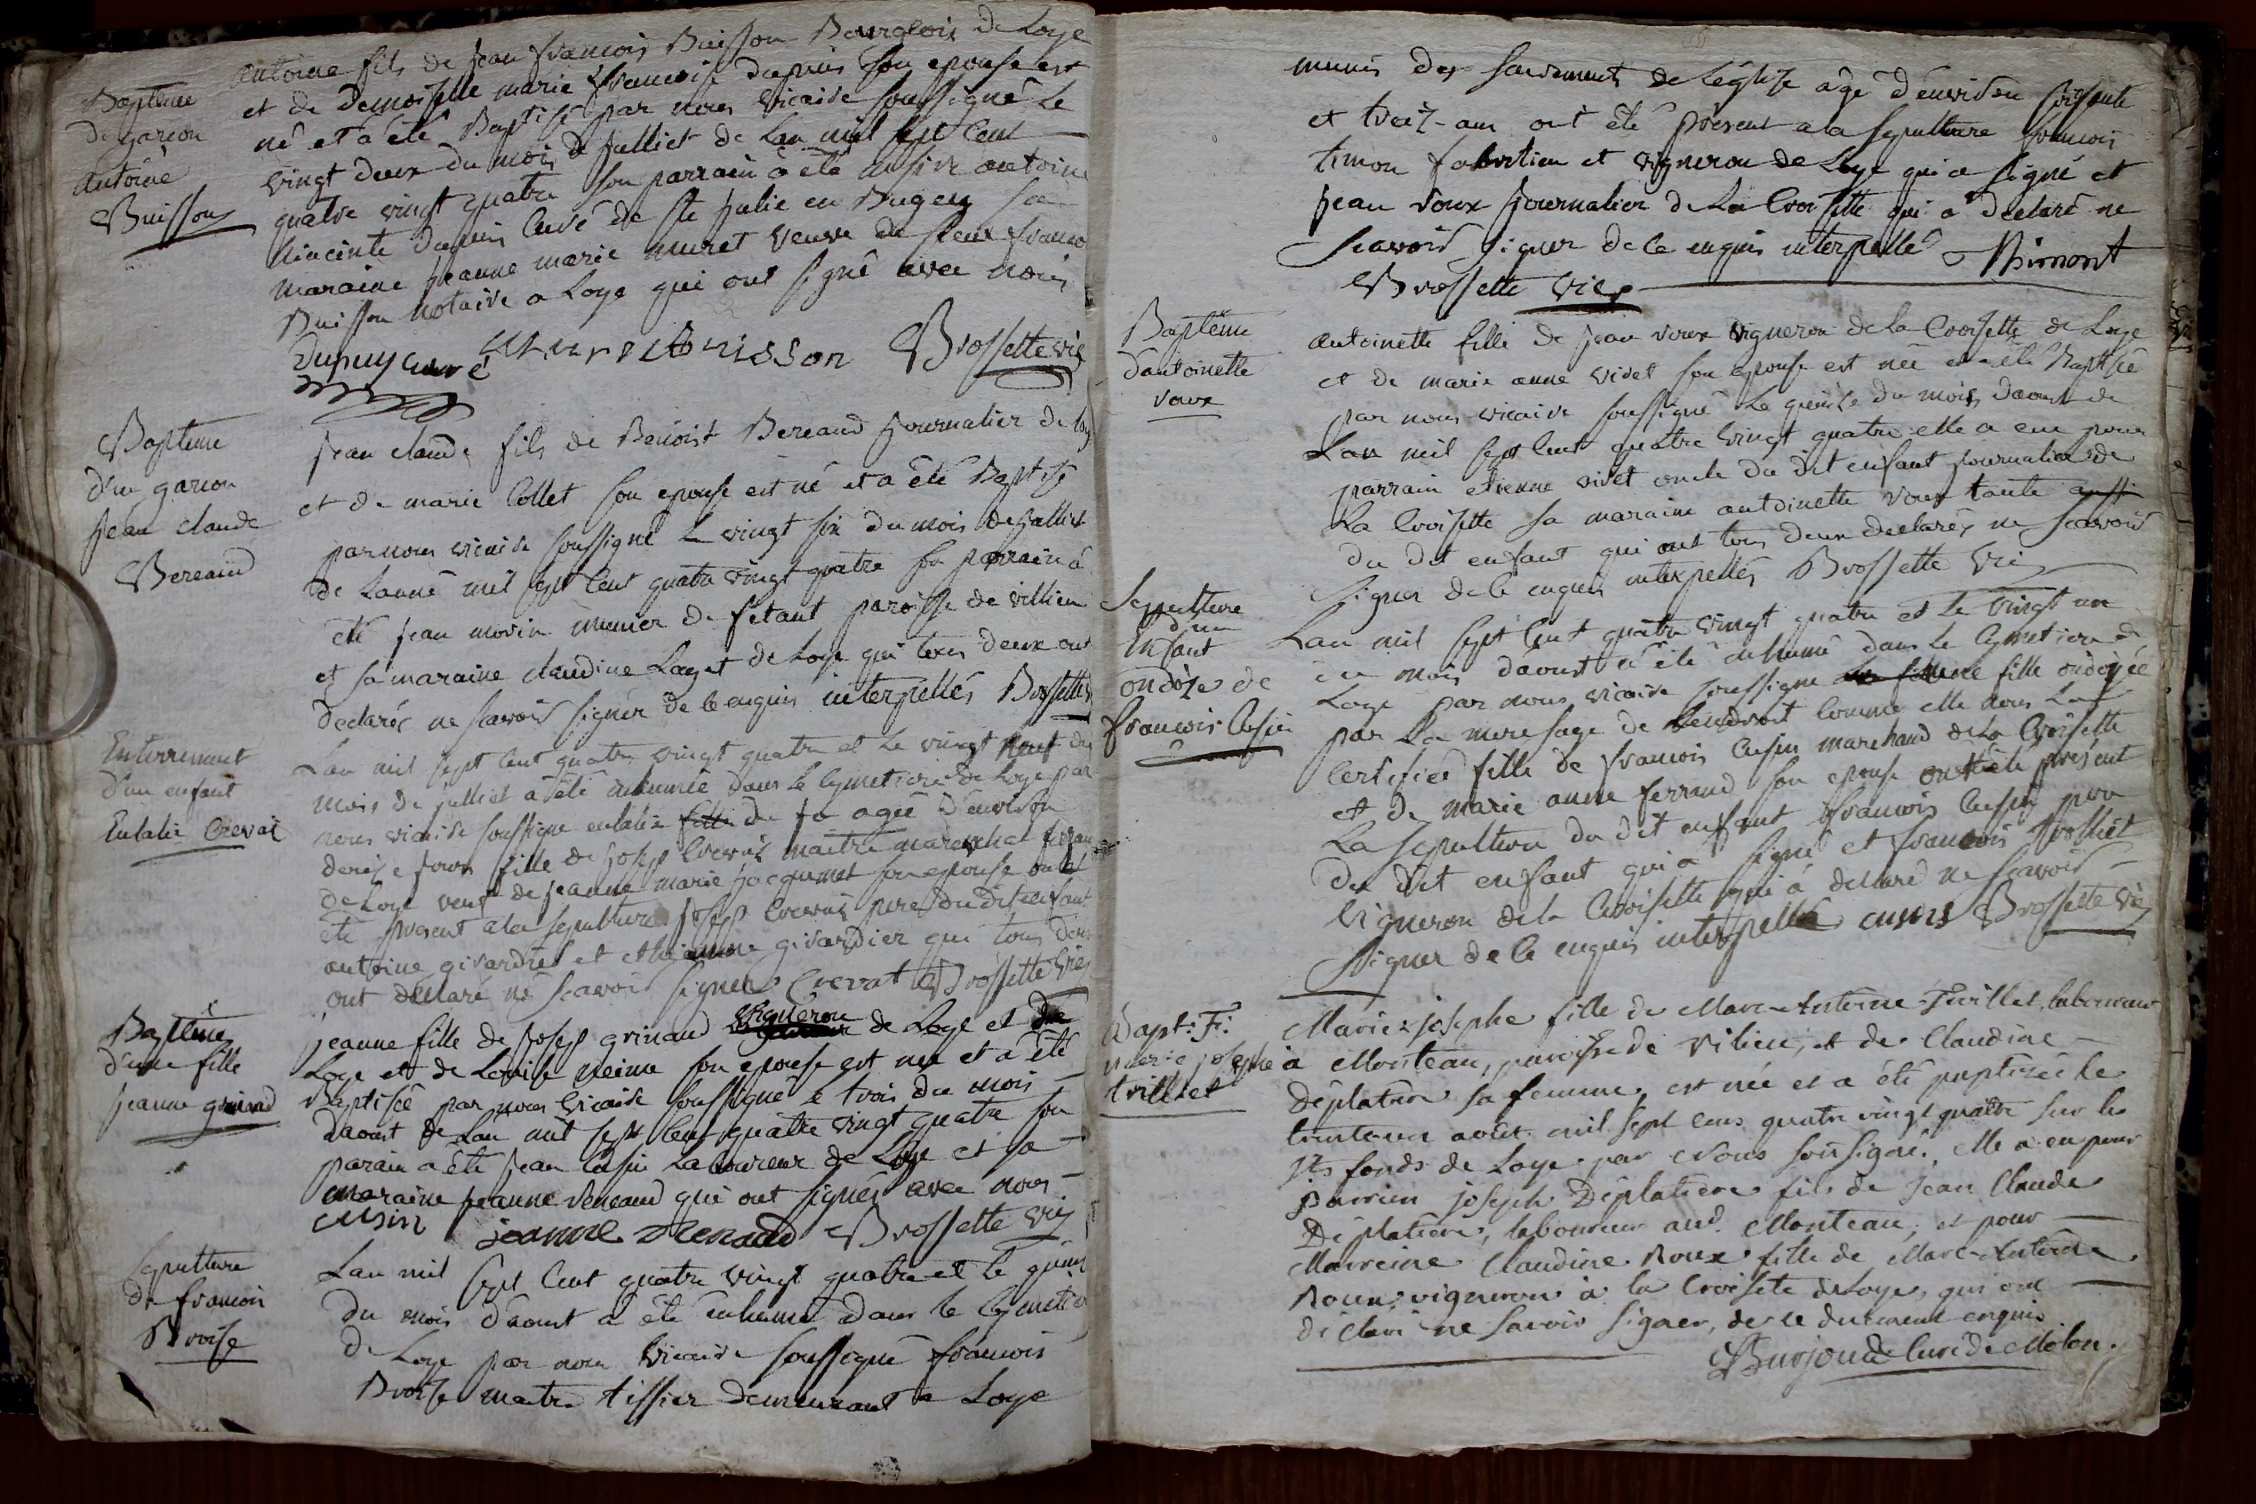 Bapteme
de garcon
antoine
Buisson
antoine fils de jean francois Buisson Bourgeois de Loye
et de demoiselle marie francoise dupuis son epouse est
né et a été Baptisé par nous vicaire soussigné le
vingt deux du mois de julliet de Lan mil sept cent
quatre vingt quatre son parrain à été antoine
hiacinte dupuis Curé de ste julie en Bugey sa
maraine jeanne marie muret veuve du sieur franco
Buisson notaire a Loye qui ont signé avec nous
Dupuy curé Buisson Brossette vic
Bapteme
d'un garcon
jean claude
Bereaud
jean claude fils de Benoist Bereaud journalier de Loy
et de marie Collet son epouse est né et a été Baptisé
par nous vicaire soussigné le vingt six du mois de julliet
de Lanné mil sept cent quatre vingt quatre son parrain à
été jean morin munier de fétant paroisse de villieu
et sa maraine claudine Laget de Loye qui tous deux ont
declarés ne scavoir signer de ce enquis interpellés Brossette
Enterrement
d'un enfant
Eulalie Crevat
Lan mil sept cent quatre vingt quatre et le vingt neuf du
mois de julliet à été inhumée dans le cymetiere de Loye par
nous vicaire soussigné eulalie agée d'environ
fille de joseph Crevat maitre marechal
de Loye de jeanne marie jacquemet son epouse ont
été present a la sepulture joseph Crevat pere du dit enfant
antoine girardier et girardier qui tous deux
ont declaré ne scavoir signer Crevat Brossette vic
Baptême
d'une fille
jeanne grinand
jeanne fille de joseph grinand vigneron de Loye et de
Loye et de Louise son epouse est née et a été
Baptisée par nous vicaire soussigné le trois du mois
daoust de Lan mil sept cent quatre vingt quatre son
parain a été jean Cusin Laboureur de Loye et sa
maraine jeanne Reneaud qui ont signés avec nous
cusin jeanne Renaud Brossette vic
Sepulture
de francois
Broise
Lan mil sept cent quatre vingt quatre et le quinz
du mois d'aoust a été inhumé dans le cymetier
de Loye par nous vicaire soussigné francois
Broise maitre tissier demeurant a Loye
munis des sacrements de L'église agé d'environ soisante
et treiz ans ont été present a la sepulture francois
timon et vigneron de Loye qui a signé et
jean roux journalier de La Croisette qui a declaré ne
scavoir signer de ce enquis interpellé Thimont
Brossette vic
Baptême
d'antoinette
roux
antoinette fille de jean roux vigneron de la Croisette de Loye
et de marie anne vivet son epouse est née et a été Baptisée
par nous vicaire soussigné le quinze du mois daoust de
Lan mil sept cent quatre vingt quatre elle a eue pour
parrain etienne vivet oncle du dit enfant journalier de
La Croisette sa maraine antoinette roux tante aussi
du dit enfant qui ont tous deux declarés ne scavoir
signer de ce enquis interpellés Brossette vic
Sepulture
d'un
Enfant
ondoié de
francois Cusin
Lan mil sept cent quatre vingt quatre et le vingt un
du mois d'aoust a été inhumé dans le cymetiere de
Loye par nous vicaire soussigné une fille ondoyée
par La mere sage de Lendroit comme elle nous La
certifié fille de francois Cusin marchand de La Croisette
et de marie anne ferrand son epouse ont été present
La sepulture du dit enfant francois Cusin pere
du dit enfant qui a signé et francois
vigneron de la Croisette qui à declaré ne scavoir
signer de ce enquis interpellé cusin Brossette vic
Bapt: F:
marie josephe
trillet
Marie josephe fille de Marc-Antoine Trillet, laboureur
à Monteau, paroisse de vilieu, et de Claudine
Déplatière sa femme, est née et a été baptisée le
trente un août mil sept cens quatre vingt quatre sur les
sts fonds de Loye par Nous soussigné, elle a eu pour
parrein joseph Déplatiere fils de jean Claude
Déplatière, laboureur aud. Monteau, et pour
Marreine Claudine Roux fille de Marc-Antoine
Roux, vigneron à la Croisete de Loye, qui ont
déclaré ne savoir signer, de ce duement enquis
Curé de Molon.